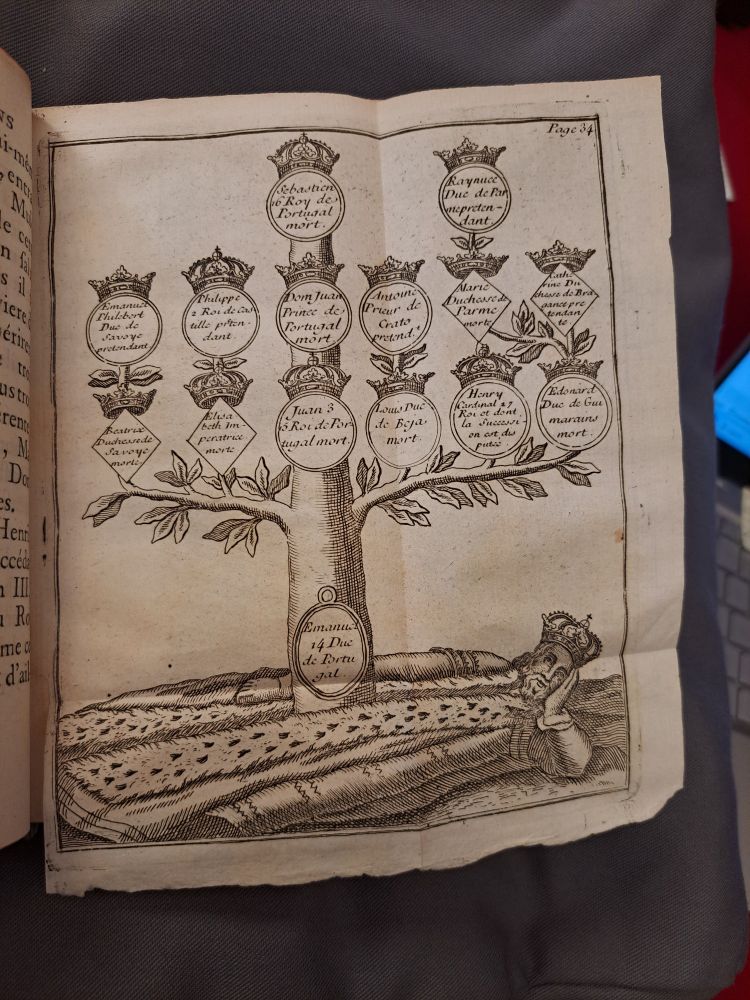 Page 34
Sebastien
16 Roy de
Portugal
mort.
Raynuce
Duc de Par
me preten-
dant.
Emanuel
Philebert
Duc de
Savoye
pretendant
Philippe
2 Roi de Cas
tille prten-
dant.
Dom Juan
Prince de
Portugal
mort
Antoine
Prieur de
Crato
pretend.t
Marie
Duchesse de
Parme
morte
Cathe
rine Du
chesse de Bra
gance pre
tendan
te.
Beatrix
Duchesse de
Savoye
morte
Elisa
beth Im-
peratrice
morte
Juan 3
Roi de Por
tugal mort.
Louis Duc
de Beja
mort.
Henry
Cardinal 27
Roi et dont
la Successi
on est dis
putée
Edonard
Duc de Gui
marains
mort.
Emanuel
14 Duc
de Portu
gal.